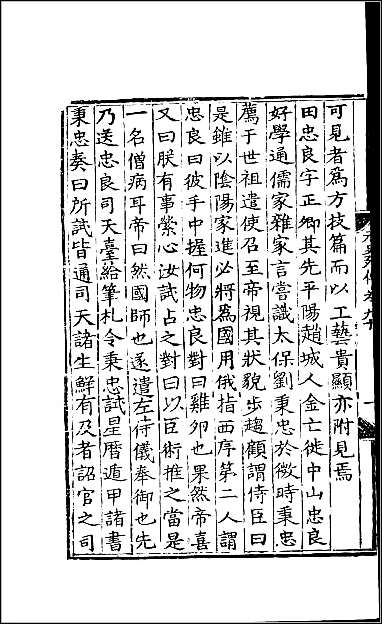 可見者爲方技篇而以工藝貴顯亦附見焉
田忠良字正卿其先平陽趙城人金亡徙中山忠良
好學通儒家雜家言嘗識太保劉秉忠於微時秉忠
薦于世祖遣使召至帝視其狀貌步趨顧謂侍臣曰
是雖以陰陽家進必將爲國用俄指西序第二人謂
忠良曰彼手中握何物忠良對曰雞卵也果然帝喜
又曰朕有事縈心汝試占之對曰以臣術推之當是
一名僧病耳帝曰然國師也遂遣左侍儀奉御也先
乃送忠良司天臺給筆札令秉忠試星曆遁甲諸書
秉忠奏曰所試皆通司天諸生鮮有及者詔官之司